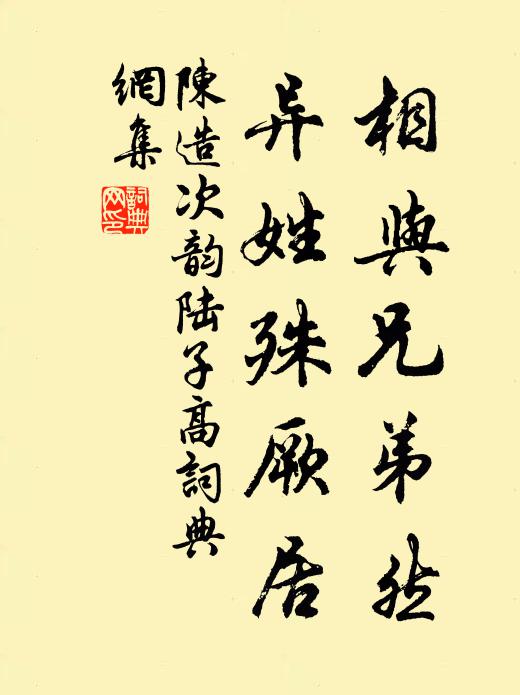 相與兄弟然
异姓殊厥居
陳造次韵陆子高詞典
網集
詞典網印